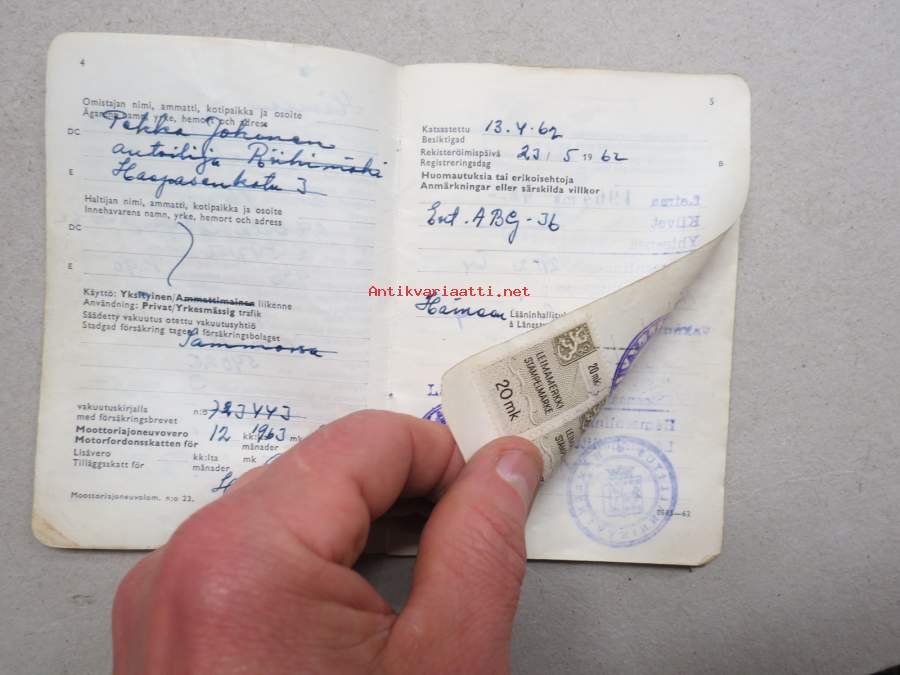 4
Omistajan nimi, ammatti, kotipaikka ja osoite
Ägarens namn, yrke, hemort och adress
DC
Pekka Johonen
autoilija Riihimäki
E
Haapasenkatu 3
Haltijan nimi, ammatti, kotipaikka ja osoite
Innehavarens namn, yrke, hemort och adress
DC
E
Käyttö: Yksityinen/Ammattimainen liikenne
Användning: Privat/Yrkesmässig trafik
Säädetty vakuutus otettu vakuutusyhtiö
Stadgad försäkring tagen i försäkringsbolaget
Sammossa
vakuutuskirjalla
med försäkringsbrevet
n:o
Moottoriajoneuvovero
Motorfordonsskatten för
12
kk:lta
månader
1963
mk
Lisävero
Tilläggsskatt för
kk:lta
månader
mk
Moottoriajoneuvolom. n:o 22,
5
Katsastettu
Besiktigad
13.4.62
Rekisteröimispäivä
Registreringsdag
23/5 1962
B
Huomautuksia tai erikoisehtoja
Anmärkningar eller särskilda villkor
Ent. ABG-36
Hämeen
Lääninhallitu
å Länsst
LEIMAMERKKI
STÄMPELMÄRKE
20 mk
20 mk.
Antikvariaatti.net